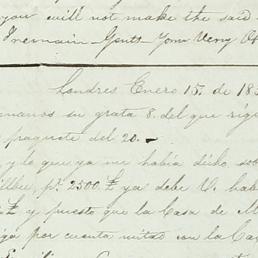 you will not make the said
Tremain Gents Your Very Ob
Londres Enero 15. de 183
manos su grata 8. del que rige
paquete del 20.—
y lo que ya me había dicho sob
pr. 2500 £ ya debe V. hab
£ y puesto que la Casa de M
iga por cuenta mitad con la Ca